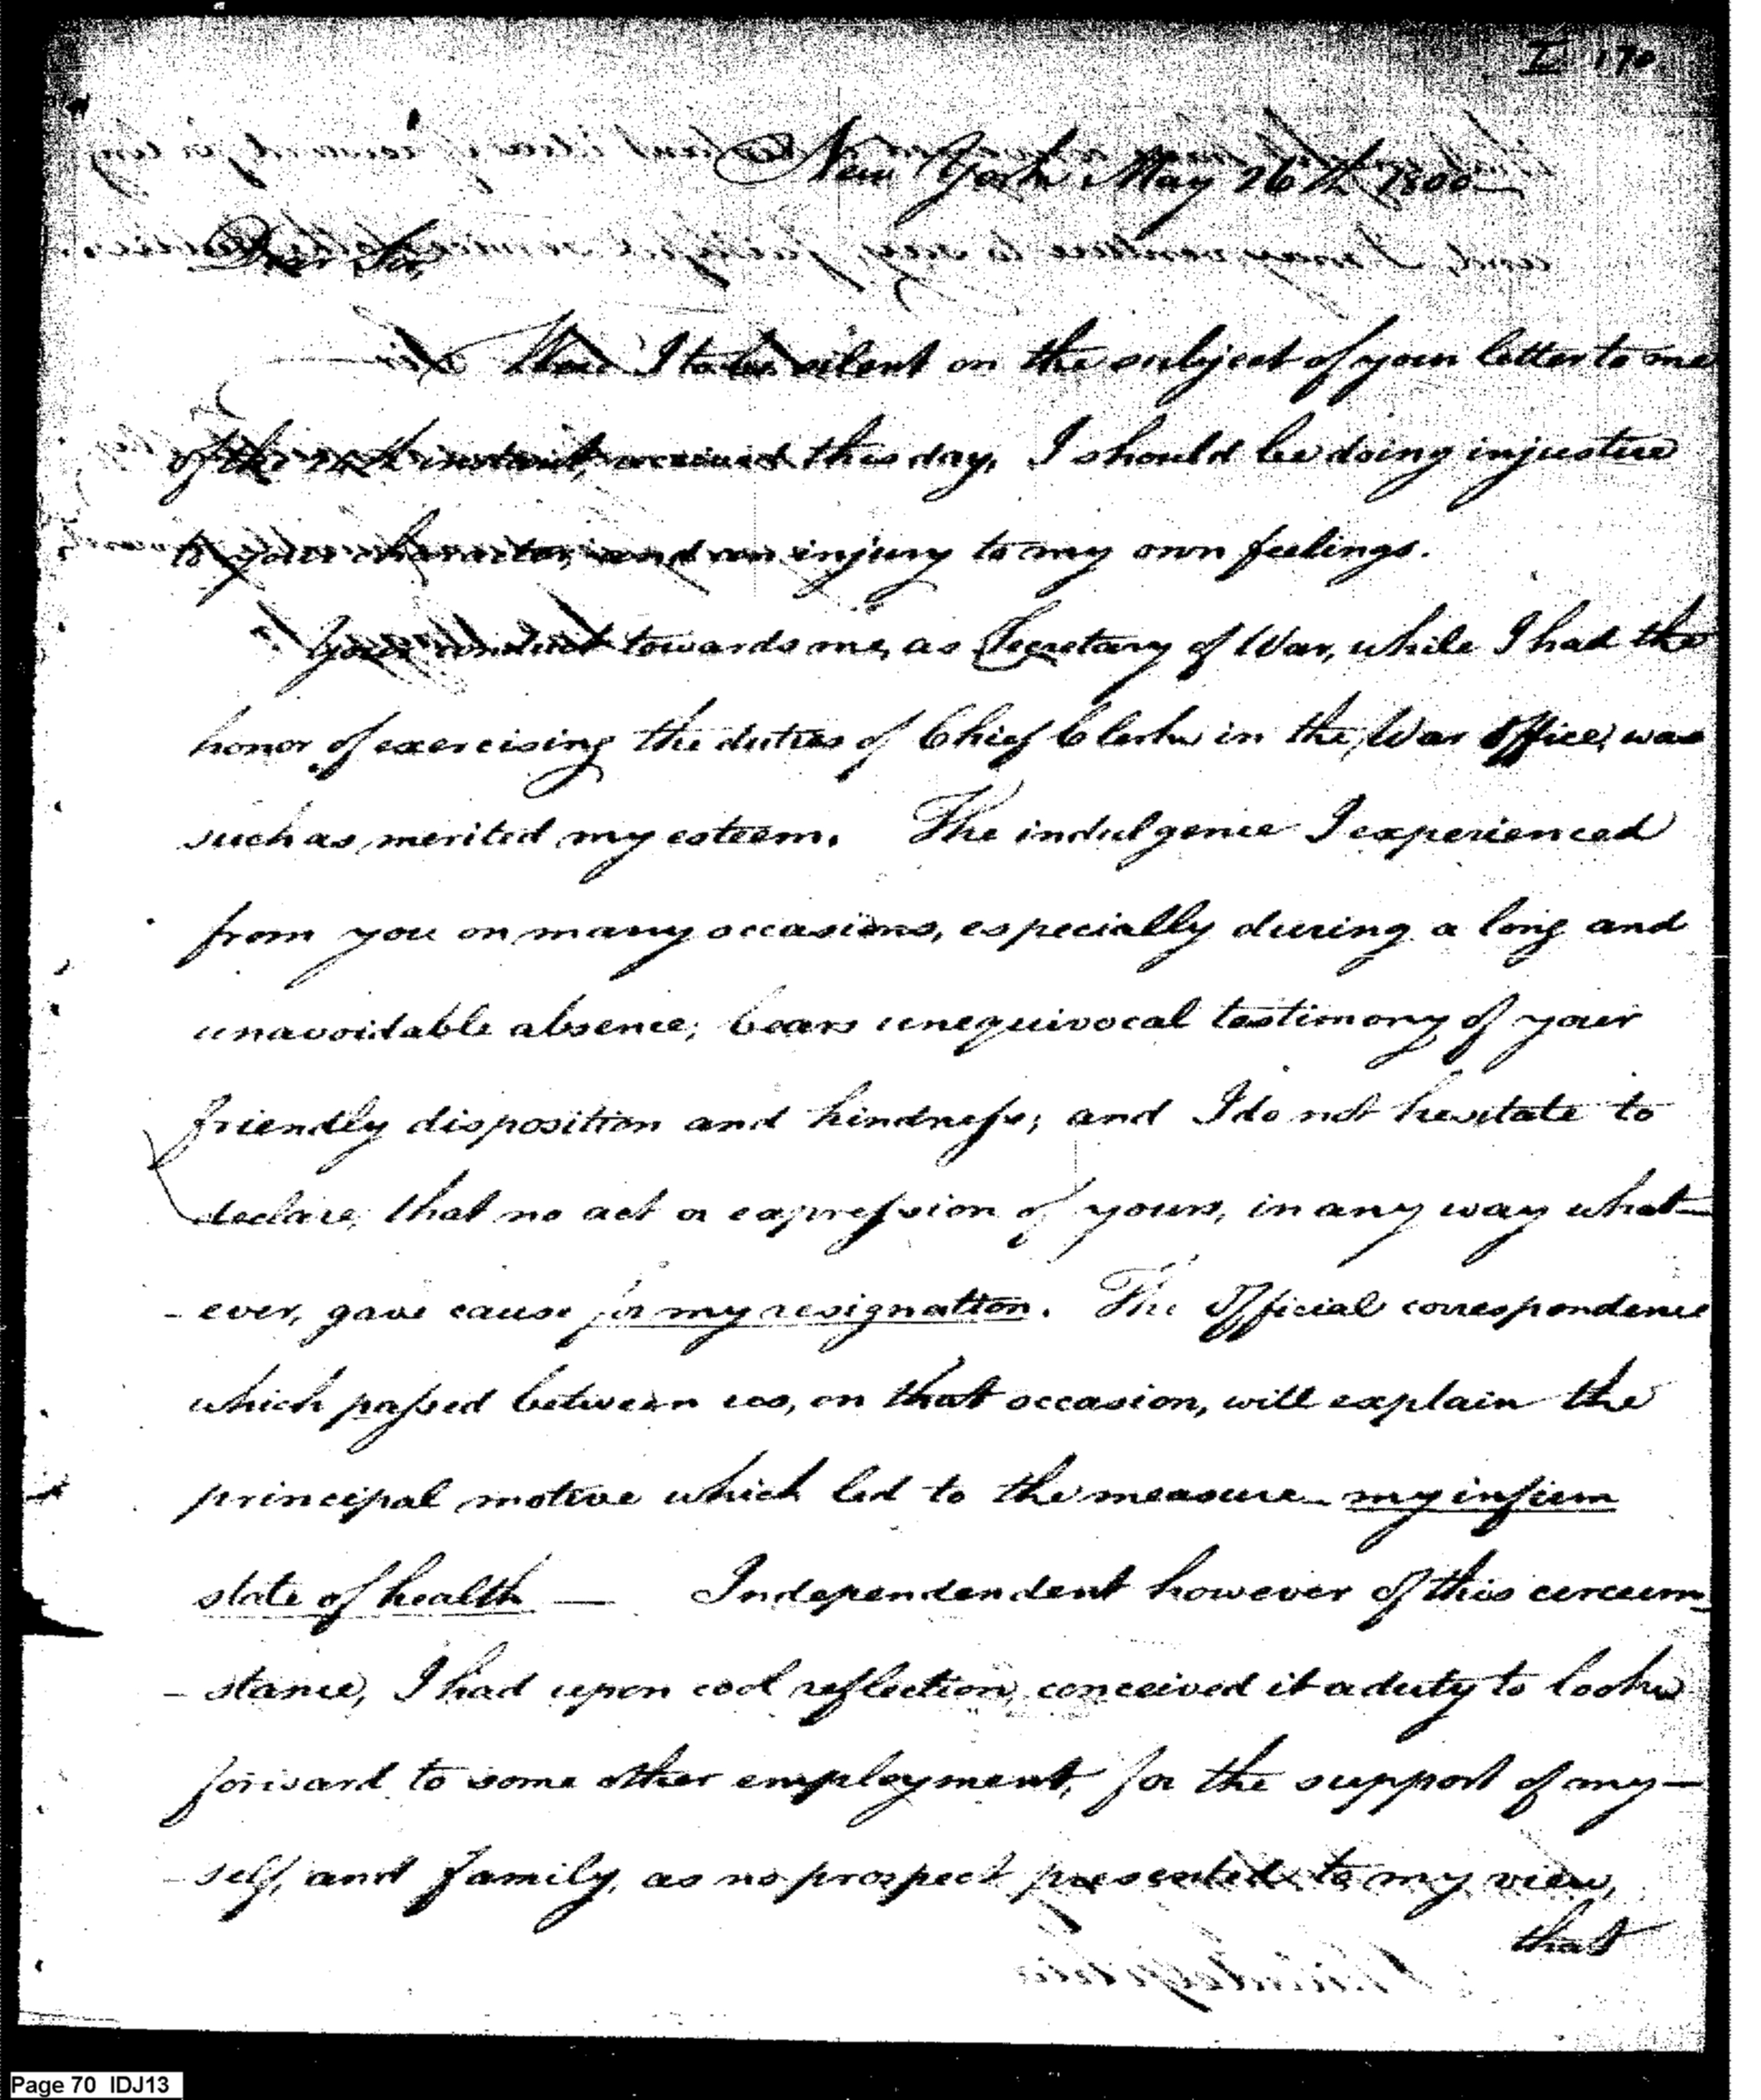 I 170
New York May 26th 1800
Dear Sir,
Were I to be silent on the subject of your letter to me
of the 24th instant, received this day, I should be doing injustice
to your character, and an injury to my own feelings.
Your conduct towards me, as Secretary of War, while I had the
honor of exercising the duties of Chief Clerk in the War Office, was
such as merited my esteem. The indulgence I experienced
from you on many occasions, especially during a long and
unavoidable absence, bears unequivocal testimony of your
friendly disposition and kindness; and I do not hesitate to
declare, that no act or expression of yours, in any way what-
- ever, gave cause for my resignation. The Official correspondence
which passed between us, on that occasion, will explain the
principal motive which led to the measure - my infirm
state of health — Independendent however of this circum-
- stance, I had upon cool reflection, conceived it a duty to look
forward to some other employment, for the support of my-
- self, and family, as no prospect presented to my view,
that
Page 70 IDJ13